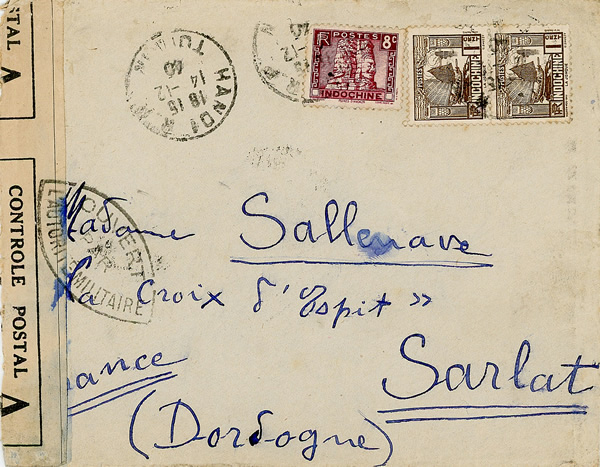 POSTES
8c
INDOCHINE
1c
POSTES
INDOCHINE
1c
POSTES
INDOCHINE
HANOI R.P.
TONKIN
18 15
14 -12
40
STAL
A
CONTROLE POSTAL
A
OUVERT
PAR
L'AUTORITÉ MILITAIRE
Madame Sallenave
La Croix d'Espit »
Sarlat
ance
(Dordogne)